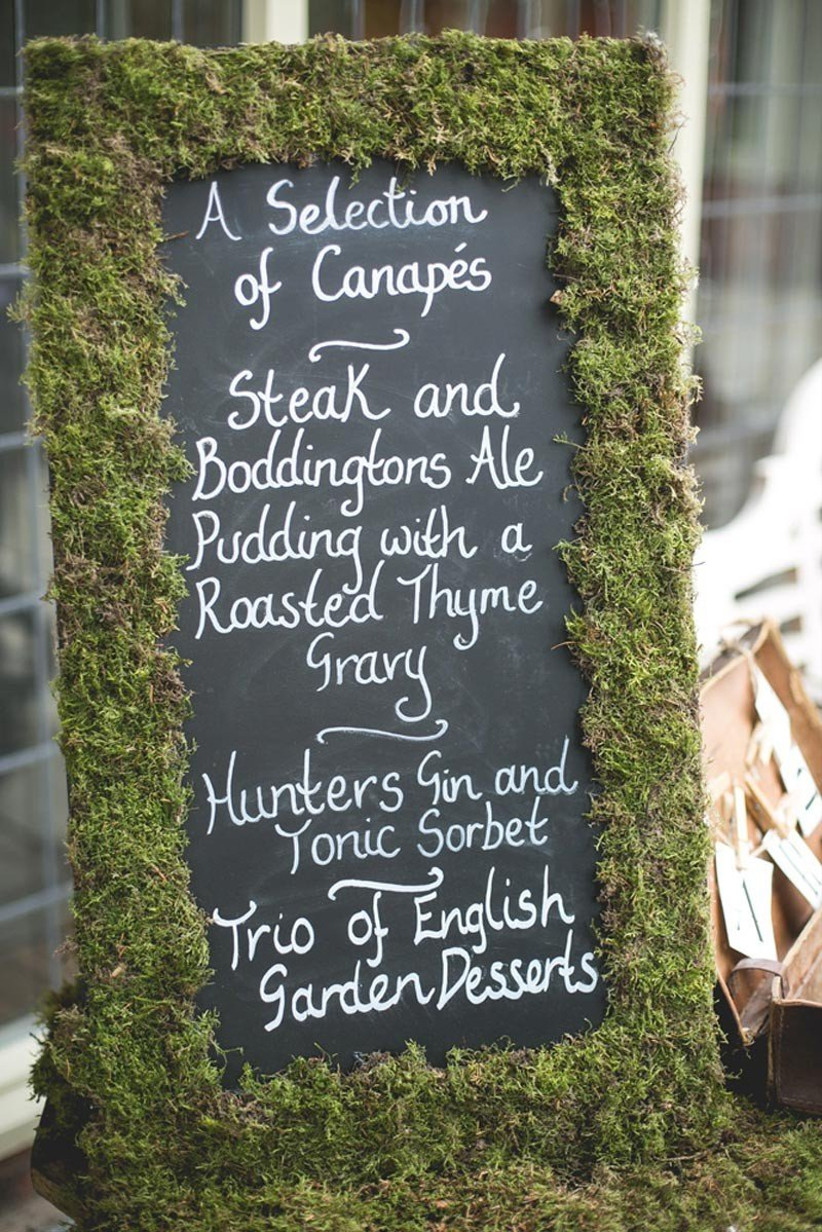 A Selection
of Canapés
Steak and
Boddingtons Ale
Pudding with a
Roasted Thyme
Gravy
Hunters Gin and
Tonic Sorbet
Trio of English
Garden Desserts